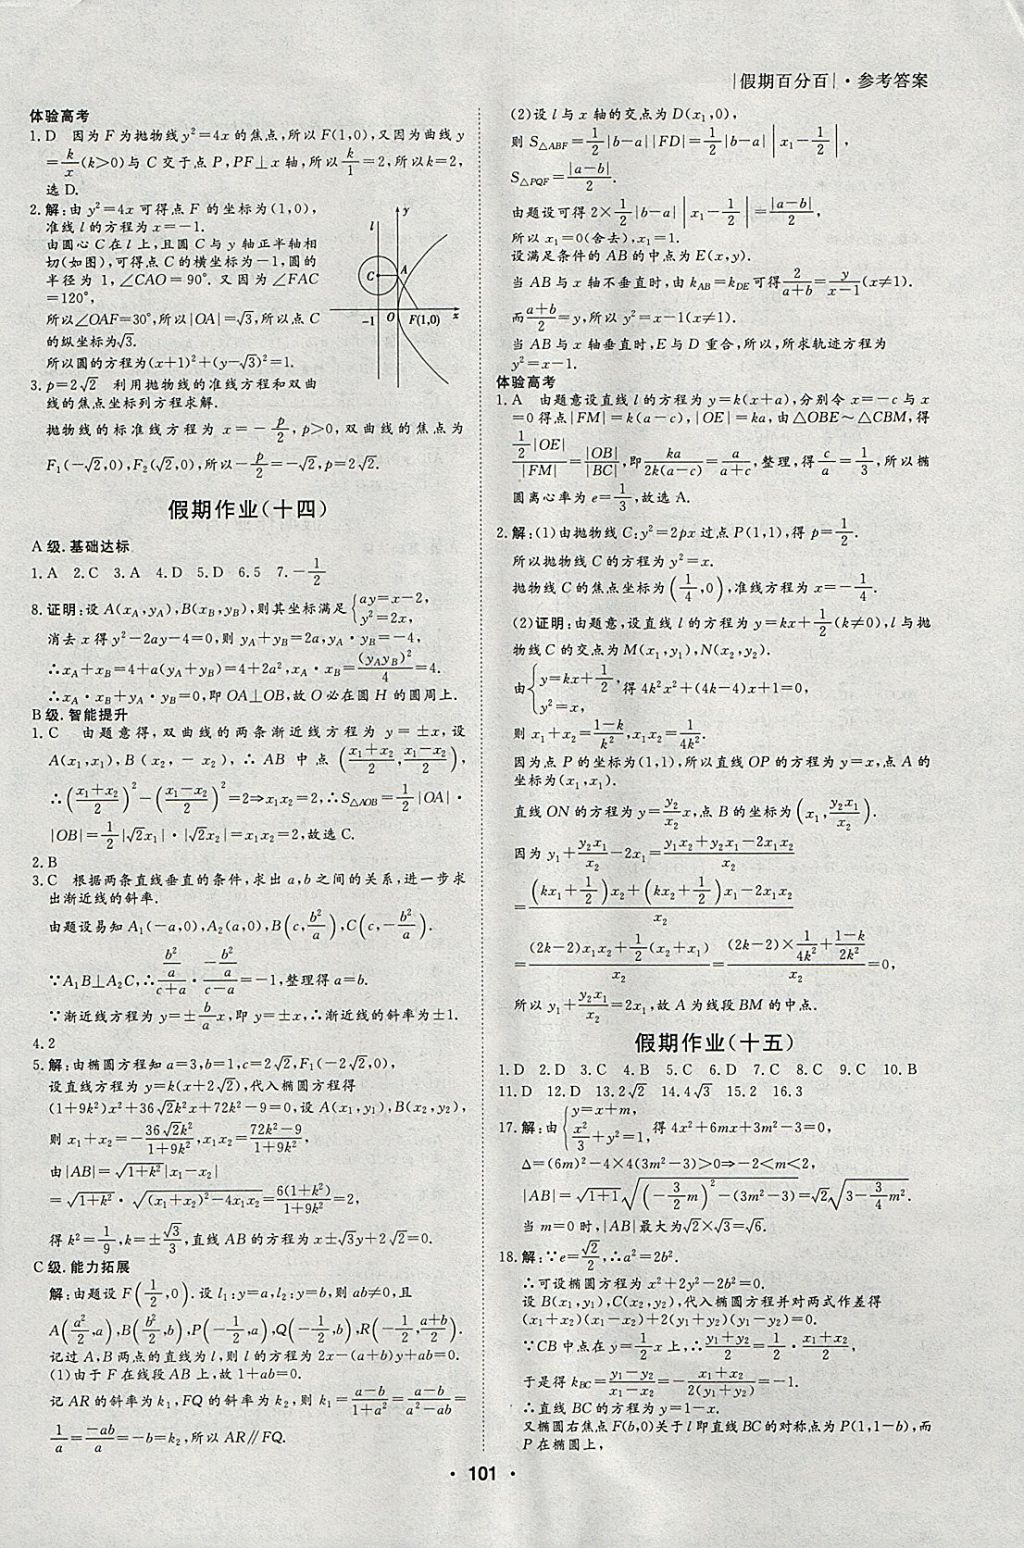 |假期百分百|·参考答案
体验高考
1.D 因为F为抛物线y²=4x的焦点,所以F(1,0),又因为曲线y
=k/x(k>0)与C交于点P,PF⊥x轴,所以k/1=2,所以k=2,
选D.
2.解:由y²=4x可得点F的坐标为(1,0),
准线l的方程为x=-1.
由圆心C在l上,且圆C与y轴正半轴相
切(如图),可得点C的横坐标为-1,圆的
半径为1,∠CAO=90°.又因为∠FAC
=120°,
所以∠OAF=30°,所以|OA|=√3,所以点C
的纵坐标为√3.
所以圆的方程为(x+1)²+(y-√3)²=1.
l y C A -1 O F(1,0) x
3.p=2√2 利用抛物线的准线方程和双曲
线的焦点坐标列方程求解.
抛物线的标准线方程为x=-p/2,p>0,双曲线的焦点为
F₁(-√2,0),F₂(√2,0),所以-p/2=-√2,p=2√2.
假期作业(十四)
A级.基础达标
1.A 2.C 3.A 4.D 5.D 6.5 7.-1/2
8.证明:设A(x_A,y_A),B(x_B,y_B),则其坐标满足{ay=x-2, y²=2x,
消去x得y²-2ay-4=0,则y_A+y_B=2a,y_A·y_B=-4,
∴x_A+x_B=4+a(y_A+y_B)=4+2a²,x_A·x_B=(y_Ay_B)²/4=4.
∴x_A·x_B+y_A·y_B=0,即OA⊥OB,故O必在圆H的圆周上.
B级.智能提升
1.C 由题意得,双曲线的两条渐近线方程为y=±x,设
A(x₁,x₁),B(x₂,-x₂),∴AB中点((x₁+x₂)/2,(x₁-x₂)/2),
∴((x₁+x₂)/2)²-((x₁-x₂)/2)²=2⇒x₁x₂=2,∴S△AOB=1/2|OA|·
|OB|=1/2|√2x₁|·|√2x₂|=x₁x₂=2,故选C.
2.B
3.C 根据两条直线垂直的条件,求出a,b之间的关系,进一步求
出渐近线的斜率.
由题设易知A₁(-a,0),A₂(a,0),B(c,b²/a),C(c,-b²/a).
∵A₁B⊥A₂C,∴(b²/a)/(c+a)·(-b²/a)/(c-a)=-1,整理得a=b.
∵渐近线方程为y=±b/a x,即y=±x,∴渐近线的斜率为±1.
4.2
5.解:由椭圆方程知a=3,b=1,c=2√2,F₁(-2√2,0),
设直线方程为y=k(x+2√2),代入椭圆方程得
(1+9k²)x²+36√2k²x+72k²-9=0,设A(x₁,y₁),B(x₂,y₂),
则x₁+x₂=-36√2k²/(1+9k²),x₁x₂=(72k²-9)/(1+9k²),
由|AB|=√(1+k²)|x₁-x₂|
=√(1+k²)·√((x₁+x₂)²-4x₁x₂)=6(1+k²)/(1+9k²)=2,
得k²=1/9,k=±√3/3,直线AB的方程为x±√3y+2√2=0.
C级.能力拓展
解:由题设F(1/2,0).设l₁:y=a,l₂:y=b,则ab≠0,且
A(a²/2,a),B(b²/2,b),P(-1/2,a),Q(-1/2,b),R(-1/2,(a+b)/2).
记过A,B两点的直线为l,则l的方程为2x-(a+b)y+ab=0.
(1)由于F在线段AB上,故1+ab=0.
记AR的斜率为k₁,FQ的斜率为k₂,则k₁=(a-b)/(1+a²)=(a-b)/(a²-ab)=
1/a=-ab/a=-b=k₂,所以AR∥FQ.
(2)设l与x轴的交点为D(x₁,0),
则S△ABF=1/2|b-a||FD|=1/2|b-a||x₁-1/2|,
S△PQF=|a-b|/2.
由题设可得2×1/2|b-a||x₁-1/2|=|a-b|/2,
所以x₁=0(舍去),x₁=1.
设满足条件的AB的中点为E(x,y).
当AB与x轴不垂直时,由k_AB=k_DE可得2/(a+b)=y/(x-1)(x≠1).
而(a+b)/2=y,所以y²=x-1(x≠1).
当AB与x轴垂直时,E与D重合,所以,所求轨迹方程为
y²=x-1.
体验高考
1.A 由题意设直线l的方程为y=k(x+a),分别令x=-c与x
=0得点|FM|=k(a-c),|OE|=ka,由△OBE∽△CBM,得
(1/2|OE|)/|FM|=|OB|/|BC|,即ka/(2k(a-c))=a/(a+c),整理,得c/a=1/3,所以椭
圆离心率为e=1/3,故选A.
2.解:(1)由抛物线C:y²=2px过点P(1,1),得p=1/2.
所以抛物线C的方程为y²=x.
抛物线C的焦点坐标为(1/4,0),准线方程为x=-1/4.
(2)证明:由题意,设直线l的方程为y=kx+1/2(k≠0),l与抛
物线C的交点为M(x₁,y₁),N(x₂,y₂).
由{y=kx+1/2, y²=x,得4k²x²+(4k-4)x+1=0.
则x₁+x₂=(1-k)/k²,x₁x₂=1/4k².
因为点P的坐标为(1,1),所以直线OP的方程为y=x,点A的
坐标为(x₁,x₁).
直线ON的方程为y=y₂/x₂ x,点B的坐标为(x₁,y₂x₁/x₂).
因为y₁+y₂x₁/x₂-2x₁=(y₁x₂+y₂x₁-2x₁x₂)/x₂
=((kx₁+1/2)x₂+(kx₂+1/2)x₁-2x₁x₂)/x₂
=((2k-2)x₁x₂+1/2(x₂+x₁))/x₂=((2k-2)×1/4k²+(1-k)/2k²)/x₂=0,
所以y₁+y₂x₁/x₂=2x₁,故A为线段BM的中点.
假期作业(十五)
1.D 2.D 3.C 4.B 5.C 6.D 7.C 8.C 9.C 10.B
11.D 12.D 13.2√2 14.4√3 15.2 16.3
17.解:由{y=x+m, x²/3+y²=1,得4x²+6mx+3m²-3=0,
Δ=(6m)²-4×4(3m²-3)>0⇒-2<m<2,
|AB|=√(1+1)√((-3/2m)²-(3m²-3))=√2√(3-3/4m²).
当m=0时,|AB|最大为√2×√3=√6.
18.解:∵e=√2/2,∴a²=2b².
∴可设椭圆方程为x²+2y²-2b²=0.
设B(x₁,y₁),C(x₂,y₂),代入椭圆方程并对两式作差得
(x₁+x₂)(x₁-x₂)+2(y₁+y₂)(y₁-y₂)=0.
∵CB中点在y=1/2x上,∴(y₁+y₂)/2=1/2·(x₁+x₂)/2.
于是得k_BC=(y₁-y₂)/(x₁-x₂)=-(x₁+x₂)/2(y₁+y₂)=-1.
∴直线BC的方程为y=1-x.
又椭圆右焦点F(b,0)关于l即直线BC的对称点为P(1,1-b),而
P在椭圆上,
·101·